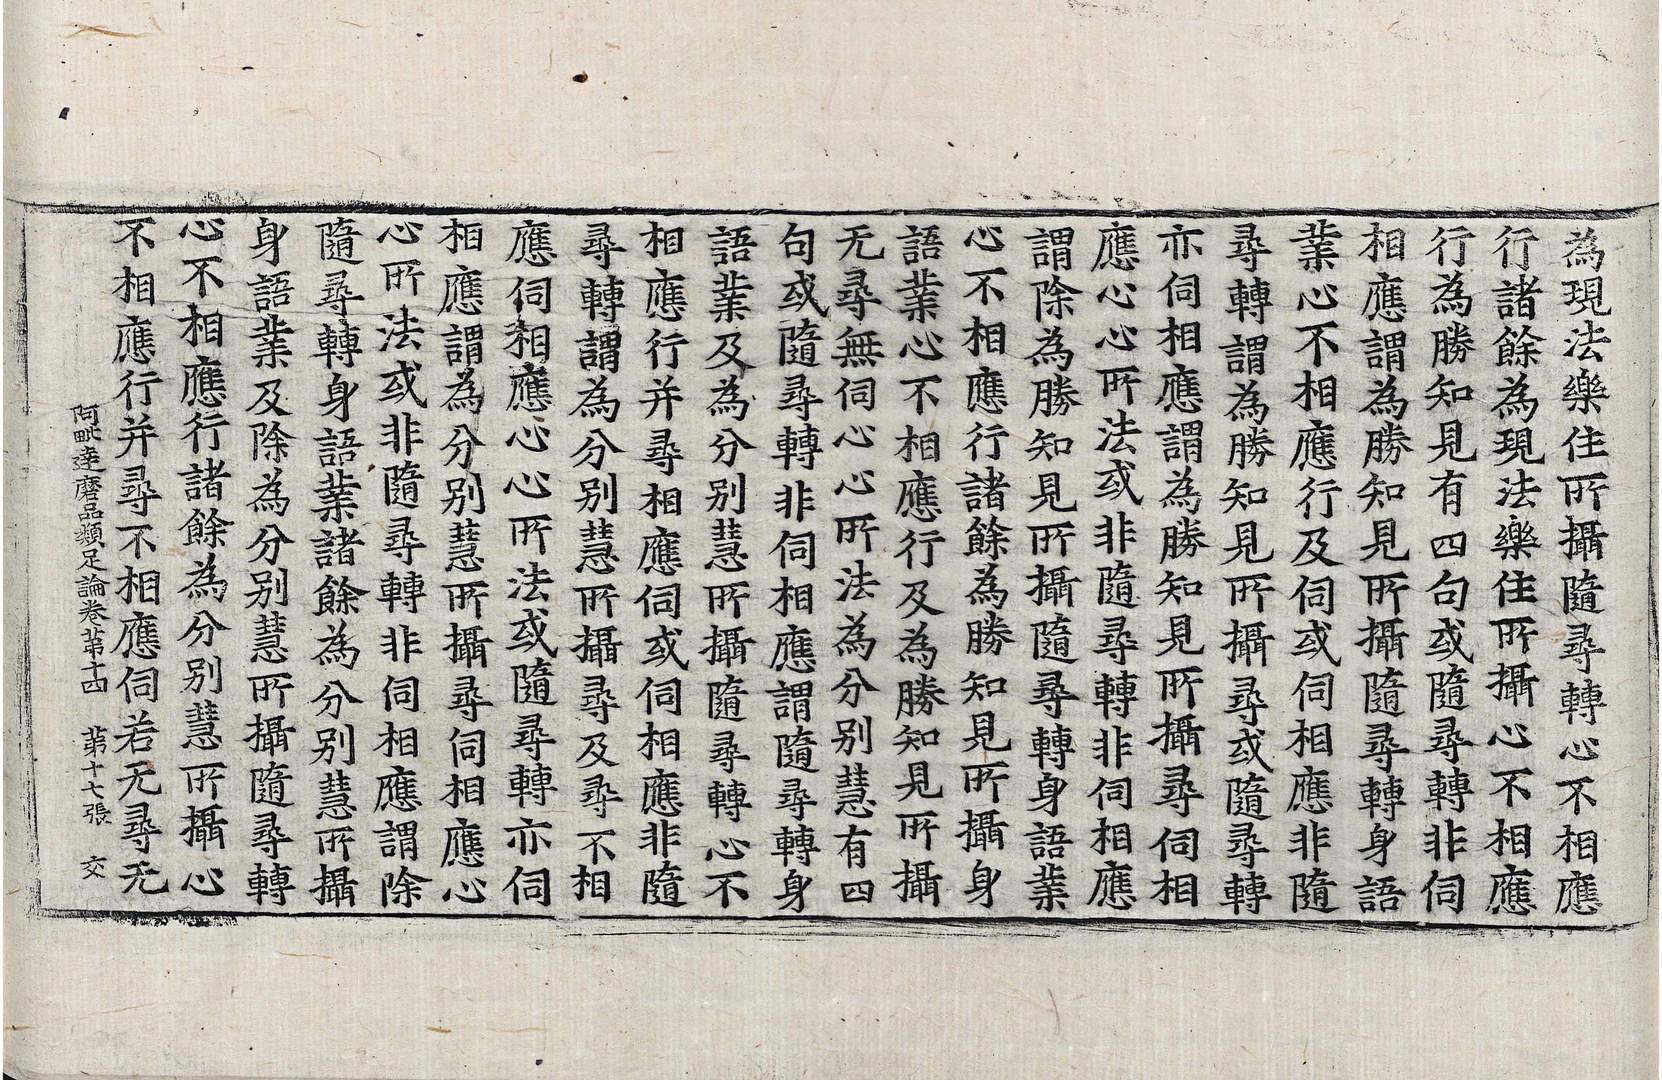 為現法樂住所攝隨尋轉心不相應
行諸餘為現法樂住所攝心不相應
行為勝知見有四句或隨尋轉非伺
相應謂為勝知見所攝隨尋轉身語
業心不相應行及伺或伺相應非隨
尋轉謂為勝知見所攝尋或隨尋轉
亦伺相應謂為勝知見所攝尋伺相
應心心所法或非隨尋轉非伺相應
謂除為勝知見所攝隨尋轉身語業
心不相應行諸餘為勝知見所攝身
語業心不相應行及為勝知見所攝
无尋無伺心心所法為分別慧有四
句或隨尋轉非伺相應謂隨尋轉身
語業及為分別慧所攝隨尋轉心不
相應行并尋相應伺或伺相應非隨
尋轉謂為分別慧所攝尋及尋不相
應伺相應心心所法或隨尋轉亦伺
相應謂為分別慧所攝尋伺相應心
心所法或非隨尋轉非伺相應謂除
隨尋轉身語業諸餘為分別慧所攝
身語業及除為分別慧所攝隨尋轉
心不相應行諸餘為分別慧所攝心
不相應行并尋不相應伺若无尋无
阿毗達磨品類足論卷第十四　第十七張　交